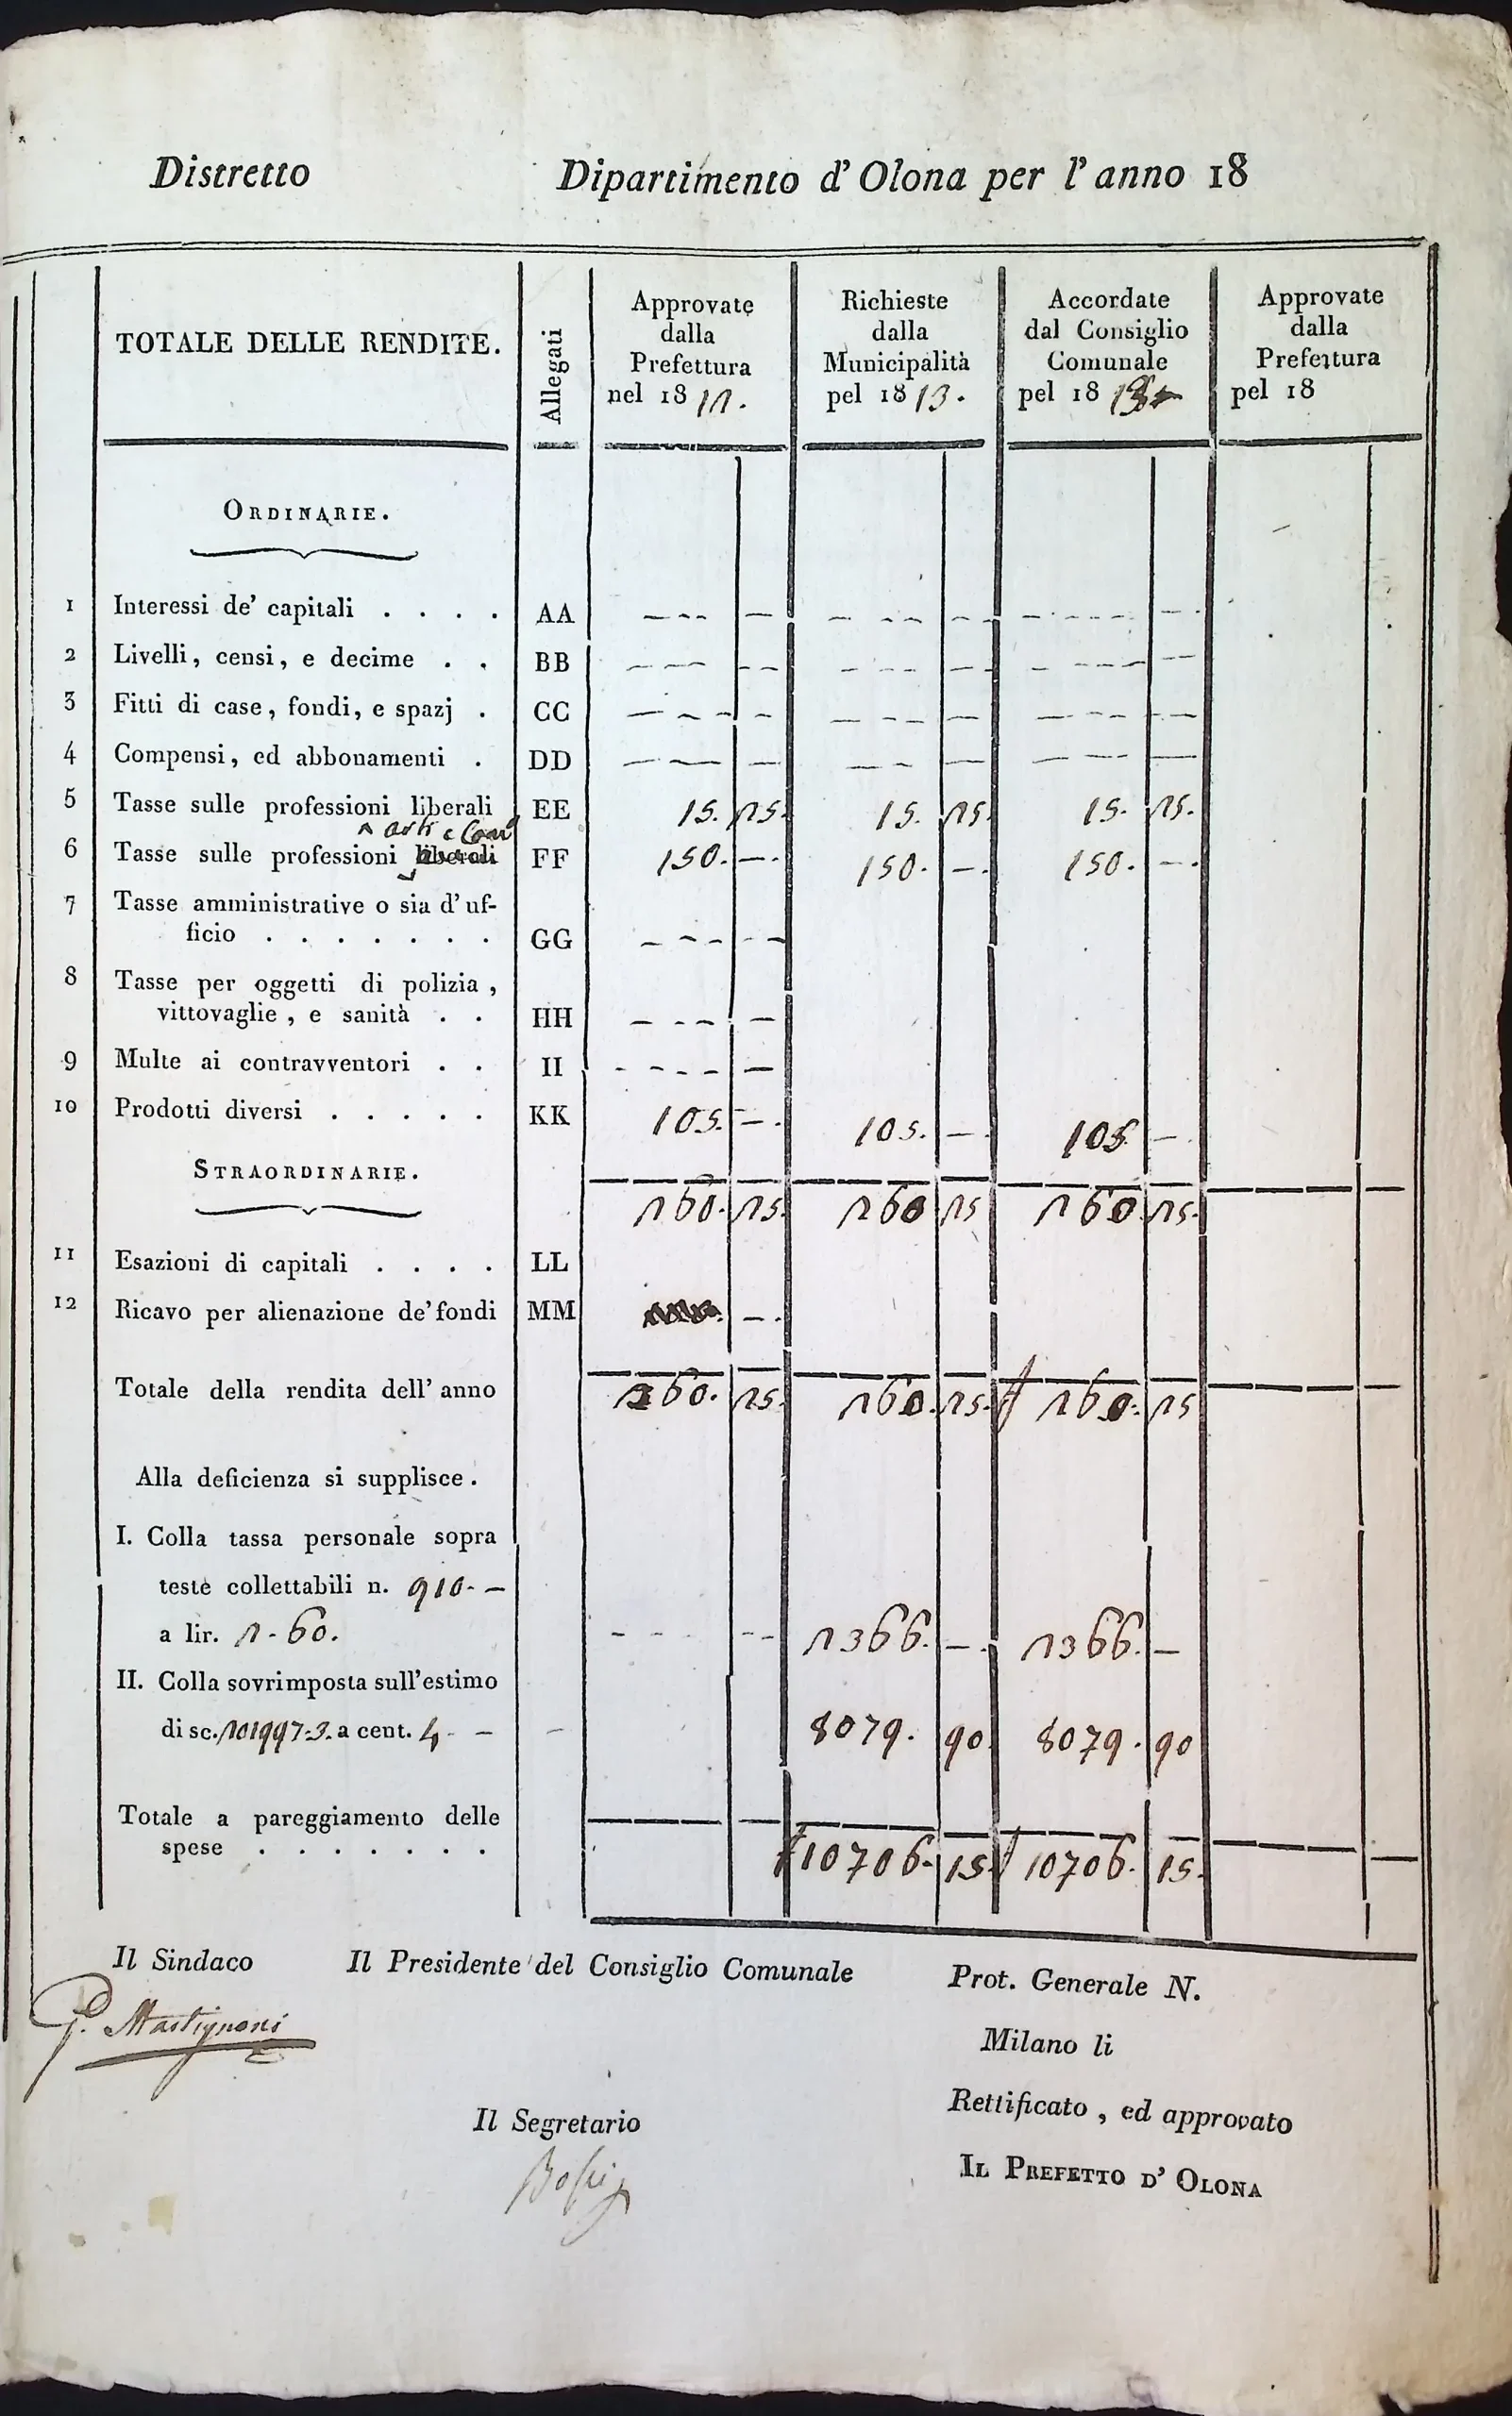 Distretto Dipartimento d' Olona per l' anno 18
TOTALE DELLE RENDITE. Allegati Approvate dalla Prefettura nel 18 12. Richieste dalla Municipalità pel 18 13. Accordate dal Consiglio Comunale pel 18 13 Approvate dalla Prefettura pel 18
ORDINARIE.
1 Interessi de' capitali . . . . AA — — — — — — — — — — — —
2 Livelli, censi, e decime . . BB — — — — — — — — — — — —
3 Fitti di case, fondi, e spazj . CC — — — — — — — — — — — —
4 Compensi, ed abbonamenti . DD — — — — — — — — —
5 Tasse sulle professioni liberali EE 15. 25. 15. 25. 15. 25.
arti e Com
6 Tasse sulle professioni liberali FF 150. —. 150. —. 150. —.
7 Tasse amministrative o sia d' uf-
ficio . . . . . . . GG — — — — —
8 Tasse per oggetti di polizia,
vittovaglie, e sanità . . HH — — — —
9 Multe ai contravventori . . II — — — — —
10 Prodotti diversi . . . . . KK 105. —. 105. —. 105 —.
STRAORDINARIE. 260. 25. 260 25 260 25.
11 Esazioni di capitali . . . . LL
12 Ricavo per alienazione de' fondi MM —.
Totale della rendita dell' anno 260. 25. 260. 25. 260. 25
Alla deficienza si supplisce.
I. Colla tassa personale sopra
teste collettabili n. 910. —
a lir. 2-60. — — — — — 2366. —. 2366. —
II. Colla sovrimposta sull'estimo
di sc. 201997-3. a cent. 4 - — — 8079. 90. 8079. 90
Totale a pareggiamento delle
spese . . . . . . . 10706. 15. 10706. 15.
Il Sindaco Il Presidente del Consiglio Comunale Prot. Generale N.
G. Mastignoni
Milano li
Il Segretario Rettificato, ed approvato
Bossi
IL PREFETTO D' OLONA